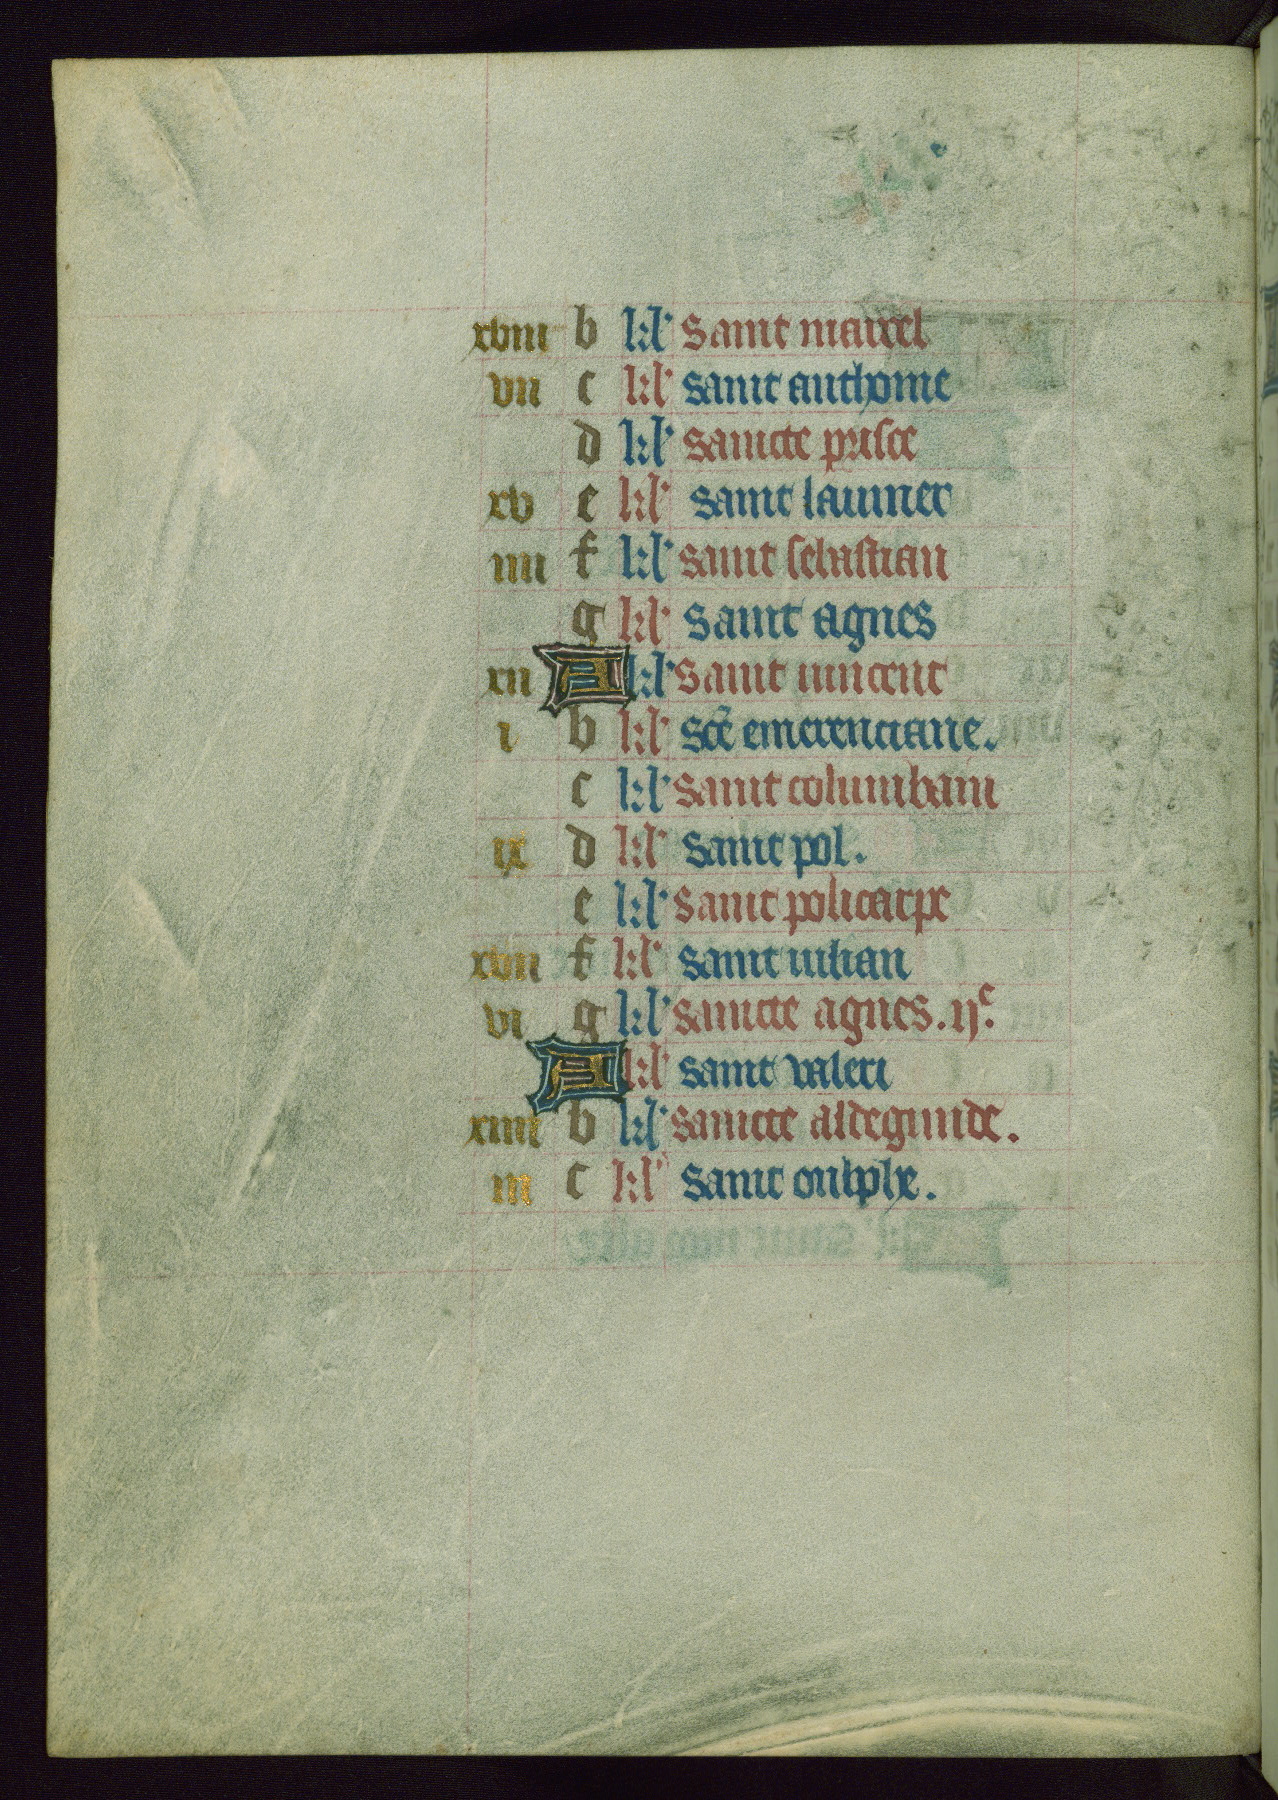 xviii b kl' Saint marcel
vii c kl' saint anthoine
d kl' saincte prisce
xv e kl' saint laumer
iiii f kl' saint sebastian
g kl' Saint agnes
xii A kl' Saint vincent
i b kl' sce emerenciane.
c kl' Saint columbain
ix d kl' saint pol.
e kl' Saint policarpe
xvii f kl' saint iulian
vi g kl' saincte agnes. iic.
A kl' saint valeri
xiiii b kl' saincte aldegunde.
iii c kl' saint oulphe.